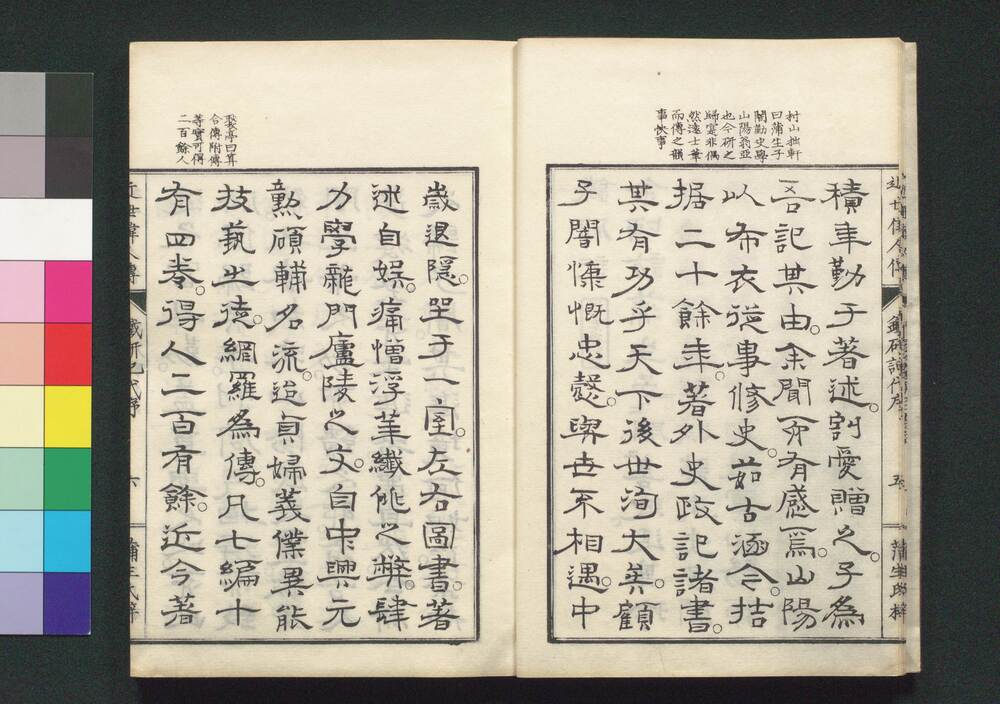 村山拙軒
曰蒲生子
闇勤史學
山陽翁亞
也今研之
歸寔非偶
然遠士華
而傳之韻
事快事
積年勤于著述。割愛贈之。子為
吾記其由。余聞而有感焉。山陽
以布衣從事修史。茹古涵今。拮
据二十餘年。著外史政記諸書。
其有功乎天下後世洵大矣。顧
子闇慷慨忠愨。與世不相遇。中
蒲生氏梓
聚亭曰算
合傳附傳
等實可得
二百餘人
歲退隱。坐于一室。左右圖書。著
述自娛。痛憎浮華纖佻之弊。肆
力學龍門廬陵之文。自中興元
勳碩輔名流。迨貞婦義僕異能
技藝之徒。網羅為傳。凡七編十
有四卷。得人二百有餘。近今著
近世偉人傳
六
蒲生氏梓